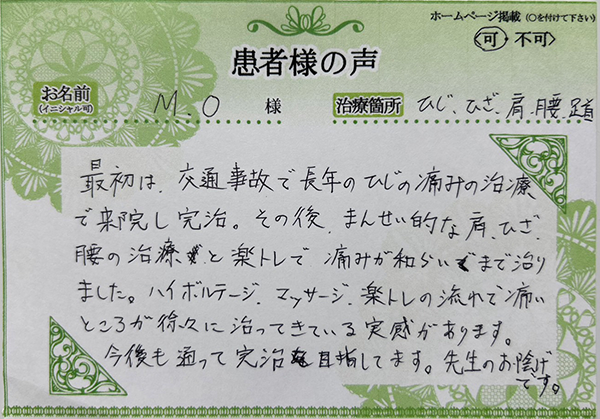 ホームページ掲載 (○を付けて下さい)
患者様の声
可・不可
お名前
(イニシャル可)
M.O 様
治療箇所 ひじ、ひざ、肩、腰、首
最初は、交通事故で長年のひじの痛みの治療
で来院し完治。その後、まんせい的な肩、ひざ、
腰の治療と楽トレで痛みが和らいでまで治り
ました。ハイボルテージ、マッサージ、楽トレの流れで痛い
ところが徐々に治ってきている実感があります。
今後も通って完治を目指してます。先生のお陰げ
です。